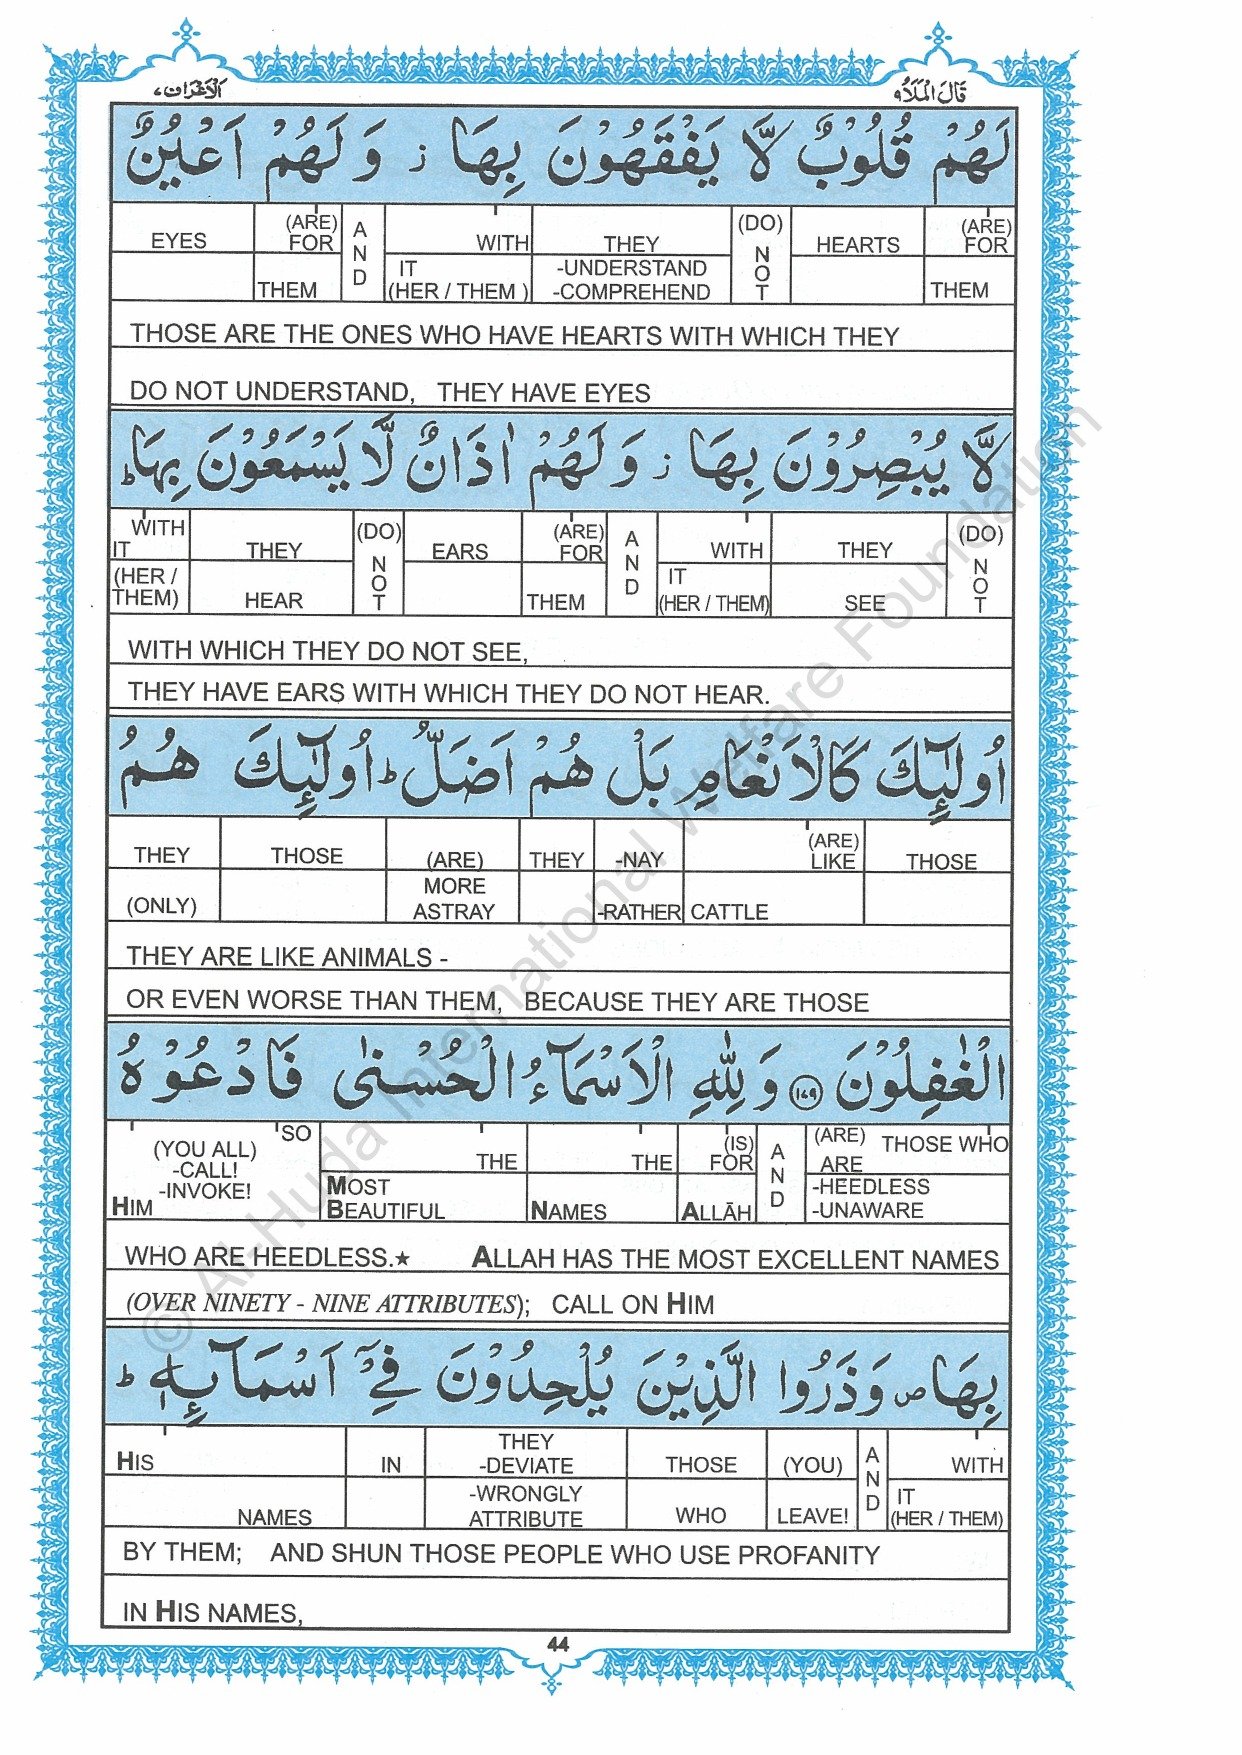 قَالَ الْمَلَاُ ۹
اَلْاَعْرَاف ۷
لَهُمْ قُلُوْبٌ لَّا يَفْقَهُوْنَ بِهَا ز وَلَهُمْ اَعْيُنٌ
EYES (ARE) FOR THEM AND WITH IT (HER / THEM ) THEY -UNDERSTAND -COMPREHEND (DO) NOT HEARTS (ARE) FOR THEM
THOSE ARE THE ONES WHO HAVE HEARTS WITH WHICH THEY
DO NOT UNDERSTAND, THEY HAVE EYES
لَّا يُبْصِرُوْنَ بِهَا ز وَلَهُمْ اٰذَانٌ لَّا يَسْمَعُوْنَ بِهَا ط
WITH IT (HER / THEM) THEY HEAR (DO) NOT EARS (ARE) FOR THEM AND WITH IT (HER / THEM) THEY SEE (DO) NOT
WITH WHICH THEY DO NOT SEE,
THEY HAVE EARS WITH WHICH THEY DO NOT HEAR.
اُولٰٓئِكَ كَالْاَنْعَامِ بَلْ هُمْ اَضَلُّ ط اُولٰٓئِكَ هُمُ
THEY (ONLY) THOSE (ARE) MORE ASTRAY THEY -NAY -RATHER (ARE) LIKE CATTLE THOSE
THEY ARE LIKE ANIMALS -
OR EVEN WORSE THAN THEM, BECAUSE THEY ARE THOSE
الْغٰفِلُوْنَ ۱۷۹ وَلِلّٰهِ الْاَسْمَآءُ الْحُسْنٰى فَادْعُوْهُ
SO (YOU ALL) -CALL! -INVOKE! HIM THE MOST BEAUTIFUL THE NAMES (IS) FOR ALLĀH AND (ARE) THOSE WHO ARE -HEEDLESS -UNAWARE
WHO ARE HEEDLESS.★ ALLAH HAS THE MOST EXCELLENT NAMES
(OVER NINETY - NINE ATTRIBUTES); CALL ON HIM
بِهَا ص وَذَرُوا الَّذِيْنَ يُلْحِدُوْنَ فِيْٓ اَسْمَآئِهٖ ط
HIS NAMES IN THEY -DEVIATE -WRONGLY ATTRIBUTE THOSE WHO (YOU) LEAVE! AND WITH IT (HER / THEM)
BY THEM; AND SHUN THOSE PEOPLE WHO USE PROFANITY
IN HIS NAMES,
44
© Al-Huda International Welfare Foundation